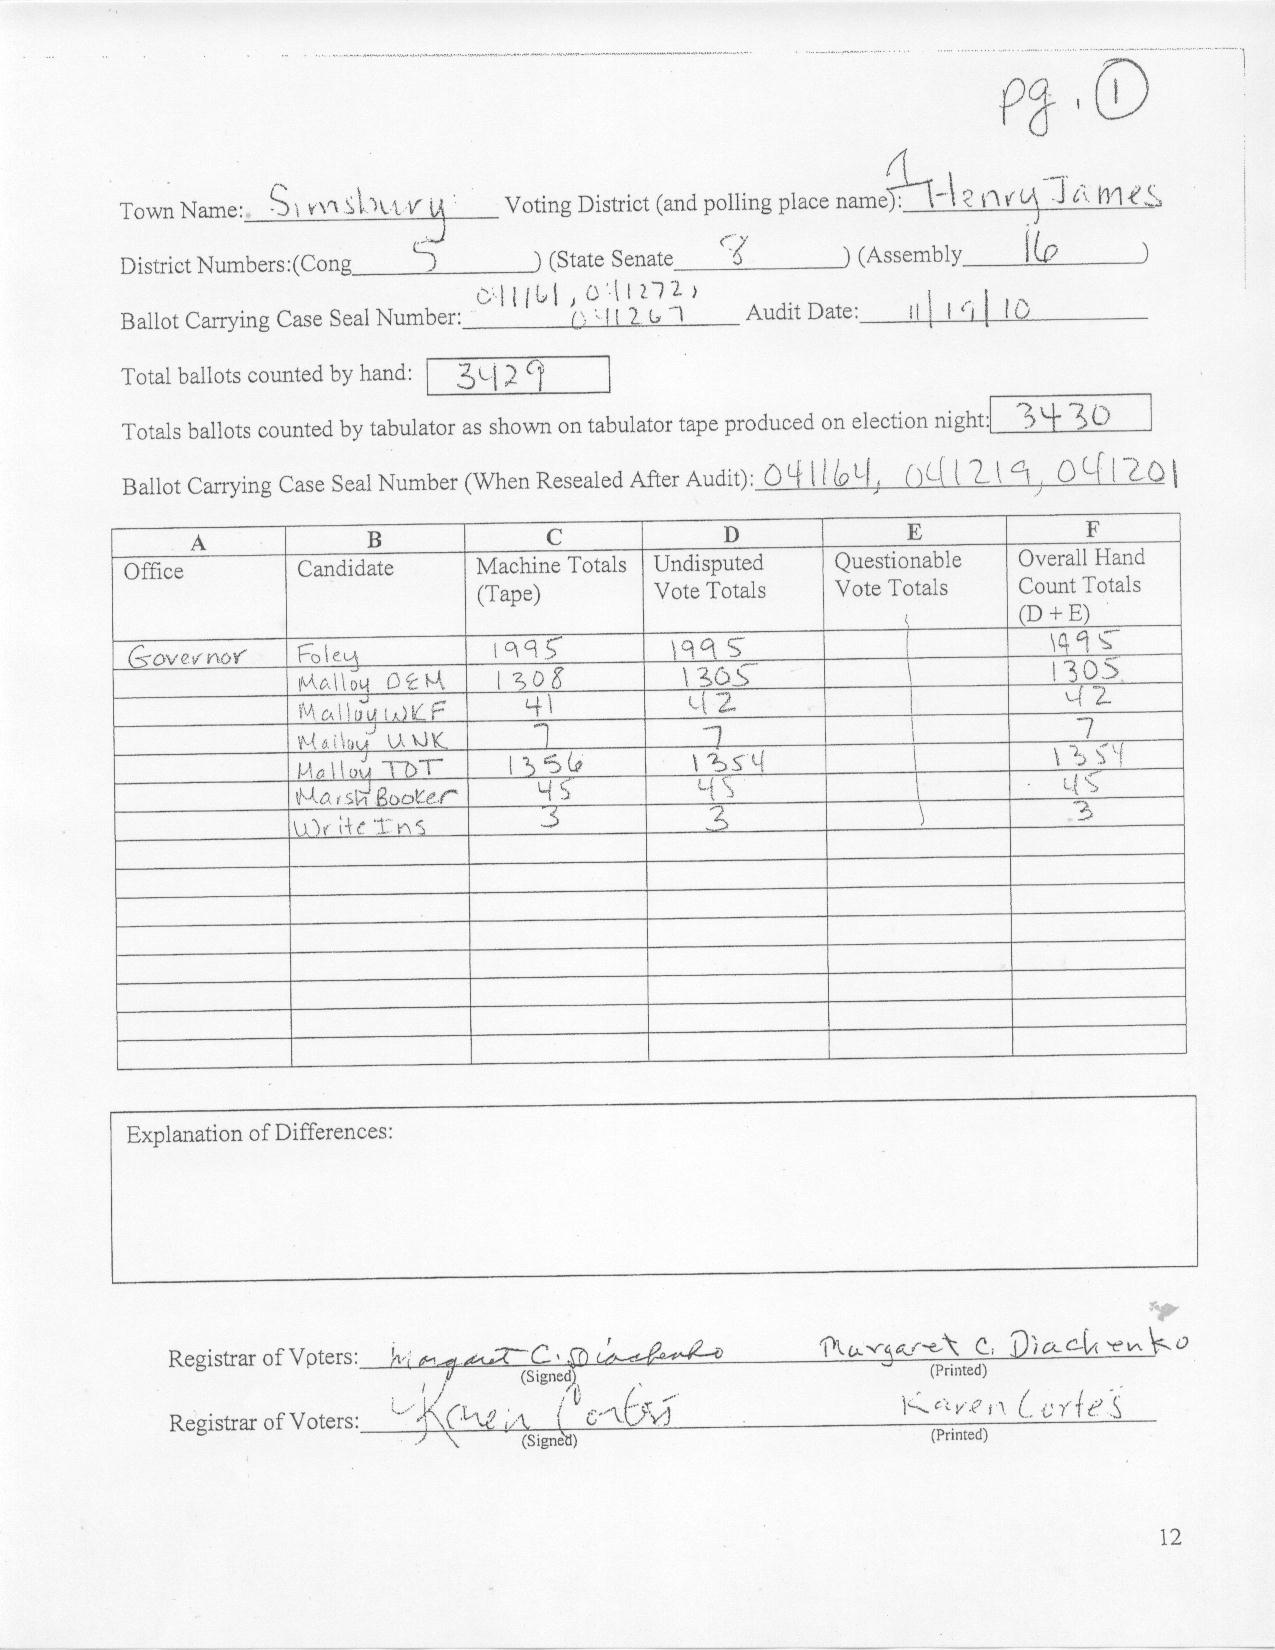 pg. 1
Town Name: Simsbury Voting District (and polling place name): 1 Henry James
District Numbers:(Cong 5 ) (State Senate 8 ) (Assembly 16 )
Ballot Carrying Case Seal Number: 041161, 041272, 041267 Audit Date: 11/19/10
Total ballots counted by hand: 3429
Totals ballots counted by tabulator as shown on tabulator tape produced on election night: 3430
Ballot Carrying Case Seal Number (When Resealed After Audit): 041164, 041219, 041201
A B C D E F
Office Candidate Machine Totals (Tape) Undisputed Vote Totals Questionable Vote Totals Overall Hand Count Totals (D + E)
Governor Foley 1995 1995 1995
Malloy DEM 1308 1305 1305
Malloy WKF 41 42 42
Malloy UNK 7 7 7
Malloy TOT 1356 1354 1354
Marsh Booker 45 45 45
Write Ins 3 3 3
Explanation of Differences:
Registrar of Voters: Margaret C. Diachenko Margaret C. Diachenko
(Signed) (Printed)
Registrar of Voters: Karen Cortés Karen Cortes
(Signed) (Printed)
12